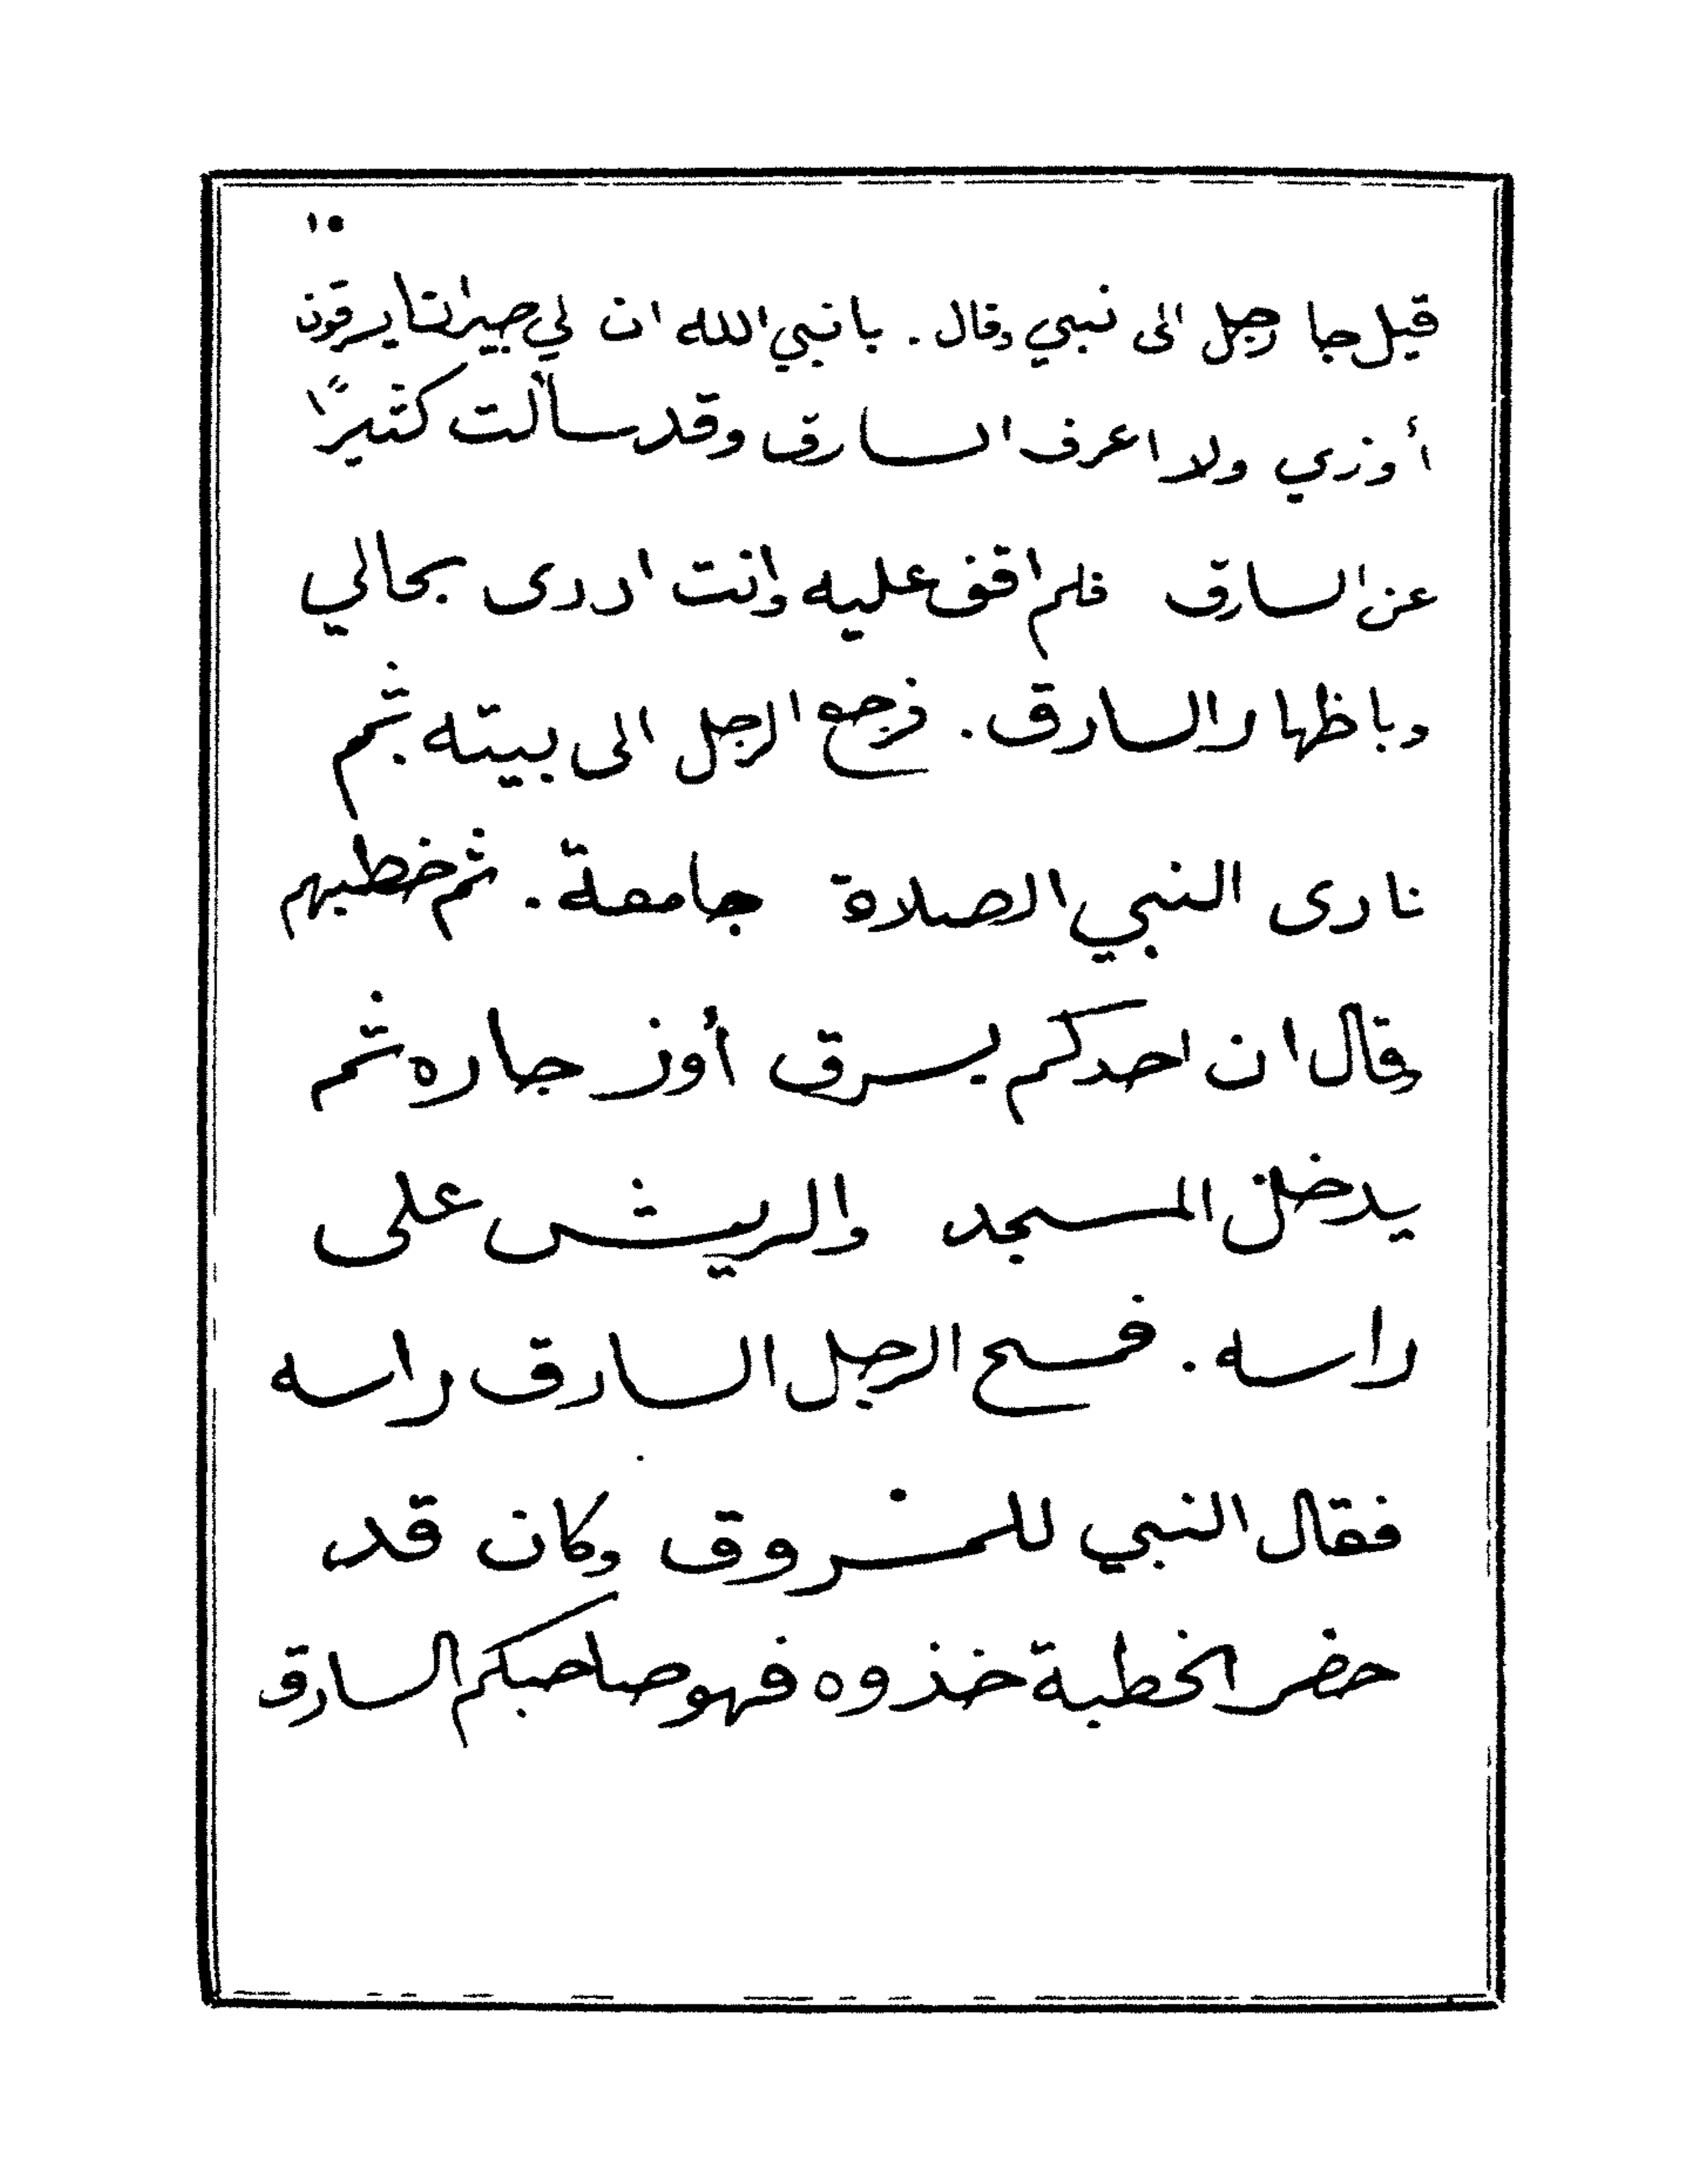 ١٠
قيل جا رجل الى نبي وقال . يا نبي الله ان لي جيرانا يسرقون
أوزي ولا اعرف السارق وقد سألت كثيرًا
عن السارق فلم اقف عليه وانت ادرى بحالي
وباظهار السارق . فرجع الرجل الى بيته ثم
نادى النبي الصلاة جامعة . ثم خطبهم
وقال ان احدكم يسرق أوز جاره ثم
يدخل المسجد والريش على
راسه . فمسح الرجل السارق راسه
فقال النبي للمسروق وكان قد
حضر الخطبة خذوه فهو صاحبكم السارق